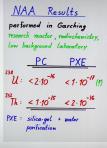 NAA Results
performed in Garching
research reactor, radiochemistry,
low background laboratory
PC PXE
²³⁸U: < 2·10⁻¹⁶ < 1·10⁻¹⁷ (?)
²³²Th: < 1·10⁻¹⁵ < 2·10⁻¹⁶
PXE = silica-gel + water
purification